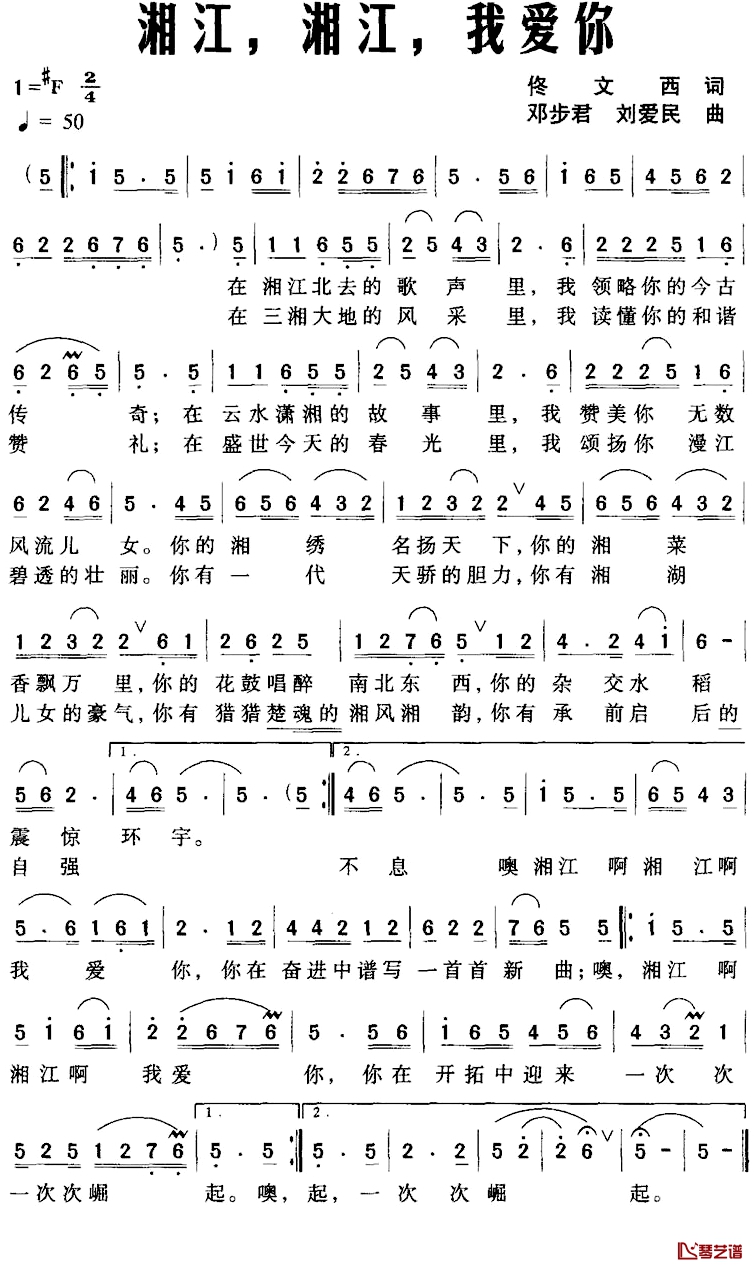 湘江，湘江，我爱你
1=#F 2/4
佟 文 西 词
♩= 50
邓步君 刘爱民 曲
( 5 ‖: i 5 · 5 | 5 i 6 i | 2 2 6 7 6 | 5 · 5 6 | i 6 5 | 4 5 6 2 |
6 2 2 6 7 6 | 5 · ) 5 | 1 1 6 5 5 | 2 5 4 3 | 2 · 6 | 2 2 2 5 1 6 |
在 湘江北去的 歌 声 里，我 领略你的今古
在 三湘大地的 风 采 里，我 读懂你的和谐
6 2 6 5 | 5 · 5 | 1 1 6 5 5 | 2 5 4 3 | 2 · 6 | 2 2 2 5 1 6 |
传 奇；在 云水潇湘的 故 事 里，我 赞美你 无数
赞 礼；在 盛世今天的 春 光 里，我 颂扬你 漫江
6 2 4 6 | 5 · 4 5 | 6 5 6 4 3 2 | 1 2 3 2 2 ∨ 4 5 | 6 5 6 4 3 2 |
风流儿 女。你的 湘 绣 名扬天 下，你的 湘 菜
碧透的壮 丽。你有 一 代 天骄的胆力，你有 湘 湖
1 2 3 2 2 ∨ 6 1 | 2 6 2 5 | 1 2 7 6 5 ∨ 1 2 | 4 · 2 4 i | 6 - |
香飘万 里，你的 花鼓唱醉 南北东 西，你的 杂 交水 稻
儿女的豪气，你有 猎猎楚魂的 湘风湘 韵，你有 承 前启 后的
1. 2.
5 6 2 · | 4 6 5 · | 5 · ( 5 :‖ 4 6 5 · | 5 · 5 | i 5 · 5 | 6 5 4 3 |
震 惊 环 宇。
自 强 不 息 噢湘江 啊湘 江啊
5 · 6 1 6 1 | 2 · 1 2 | 4 4 2 1 2 | 6 2 2 | 7 6 5 5 ‖: i 5 · 5 |
我 爱 你，你在 奋进中谱写 一首首 新 曲；噢，湘江 啊
5 i 6 i | 2 2 6 7 6 | 5 · 5 6 | i 6 5 4 5 6 | 4 3 2 |
湘江啊 我爱 你，你在 开拓中迎来 一次 次
1. 2.
5 2 5 1 2 7 6 | 5 · 5 :‖ 5 · 5 | 2 · 2 | 5 2 | 2 6 ∨ | 5 - | 5 - ‖
一次次崛 起。噢，起，一 次 次 崛 起。
琴艺谱